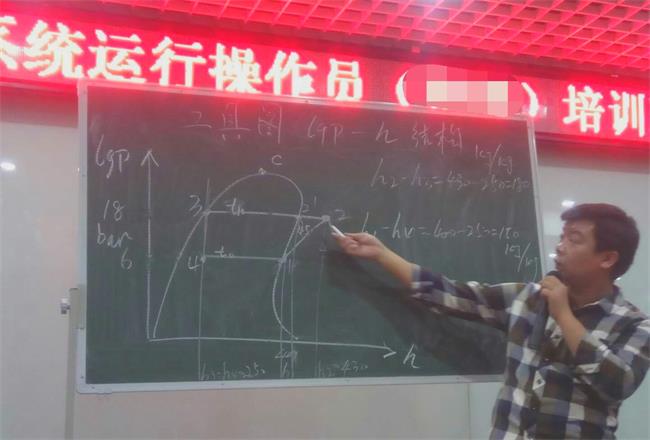 系统运行操作员（ ）培训
工具图 lgp-h 结构
kJ/kg
h2-h3=430-250=180
lgp
C
18 3 tk 2' 2
bar
h1-h4=400-250=150
kJ/kg
6 4 t0 1
h
h3=h4=250 400 h1 h2=430